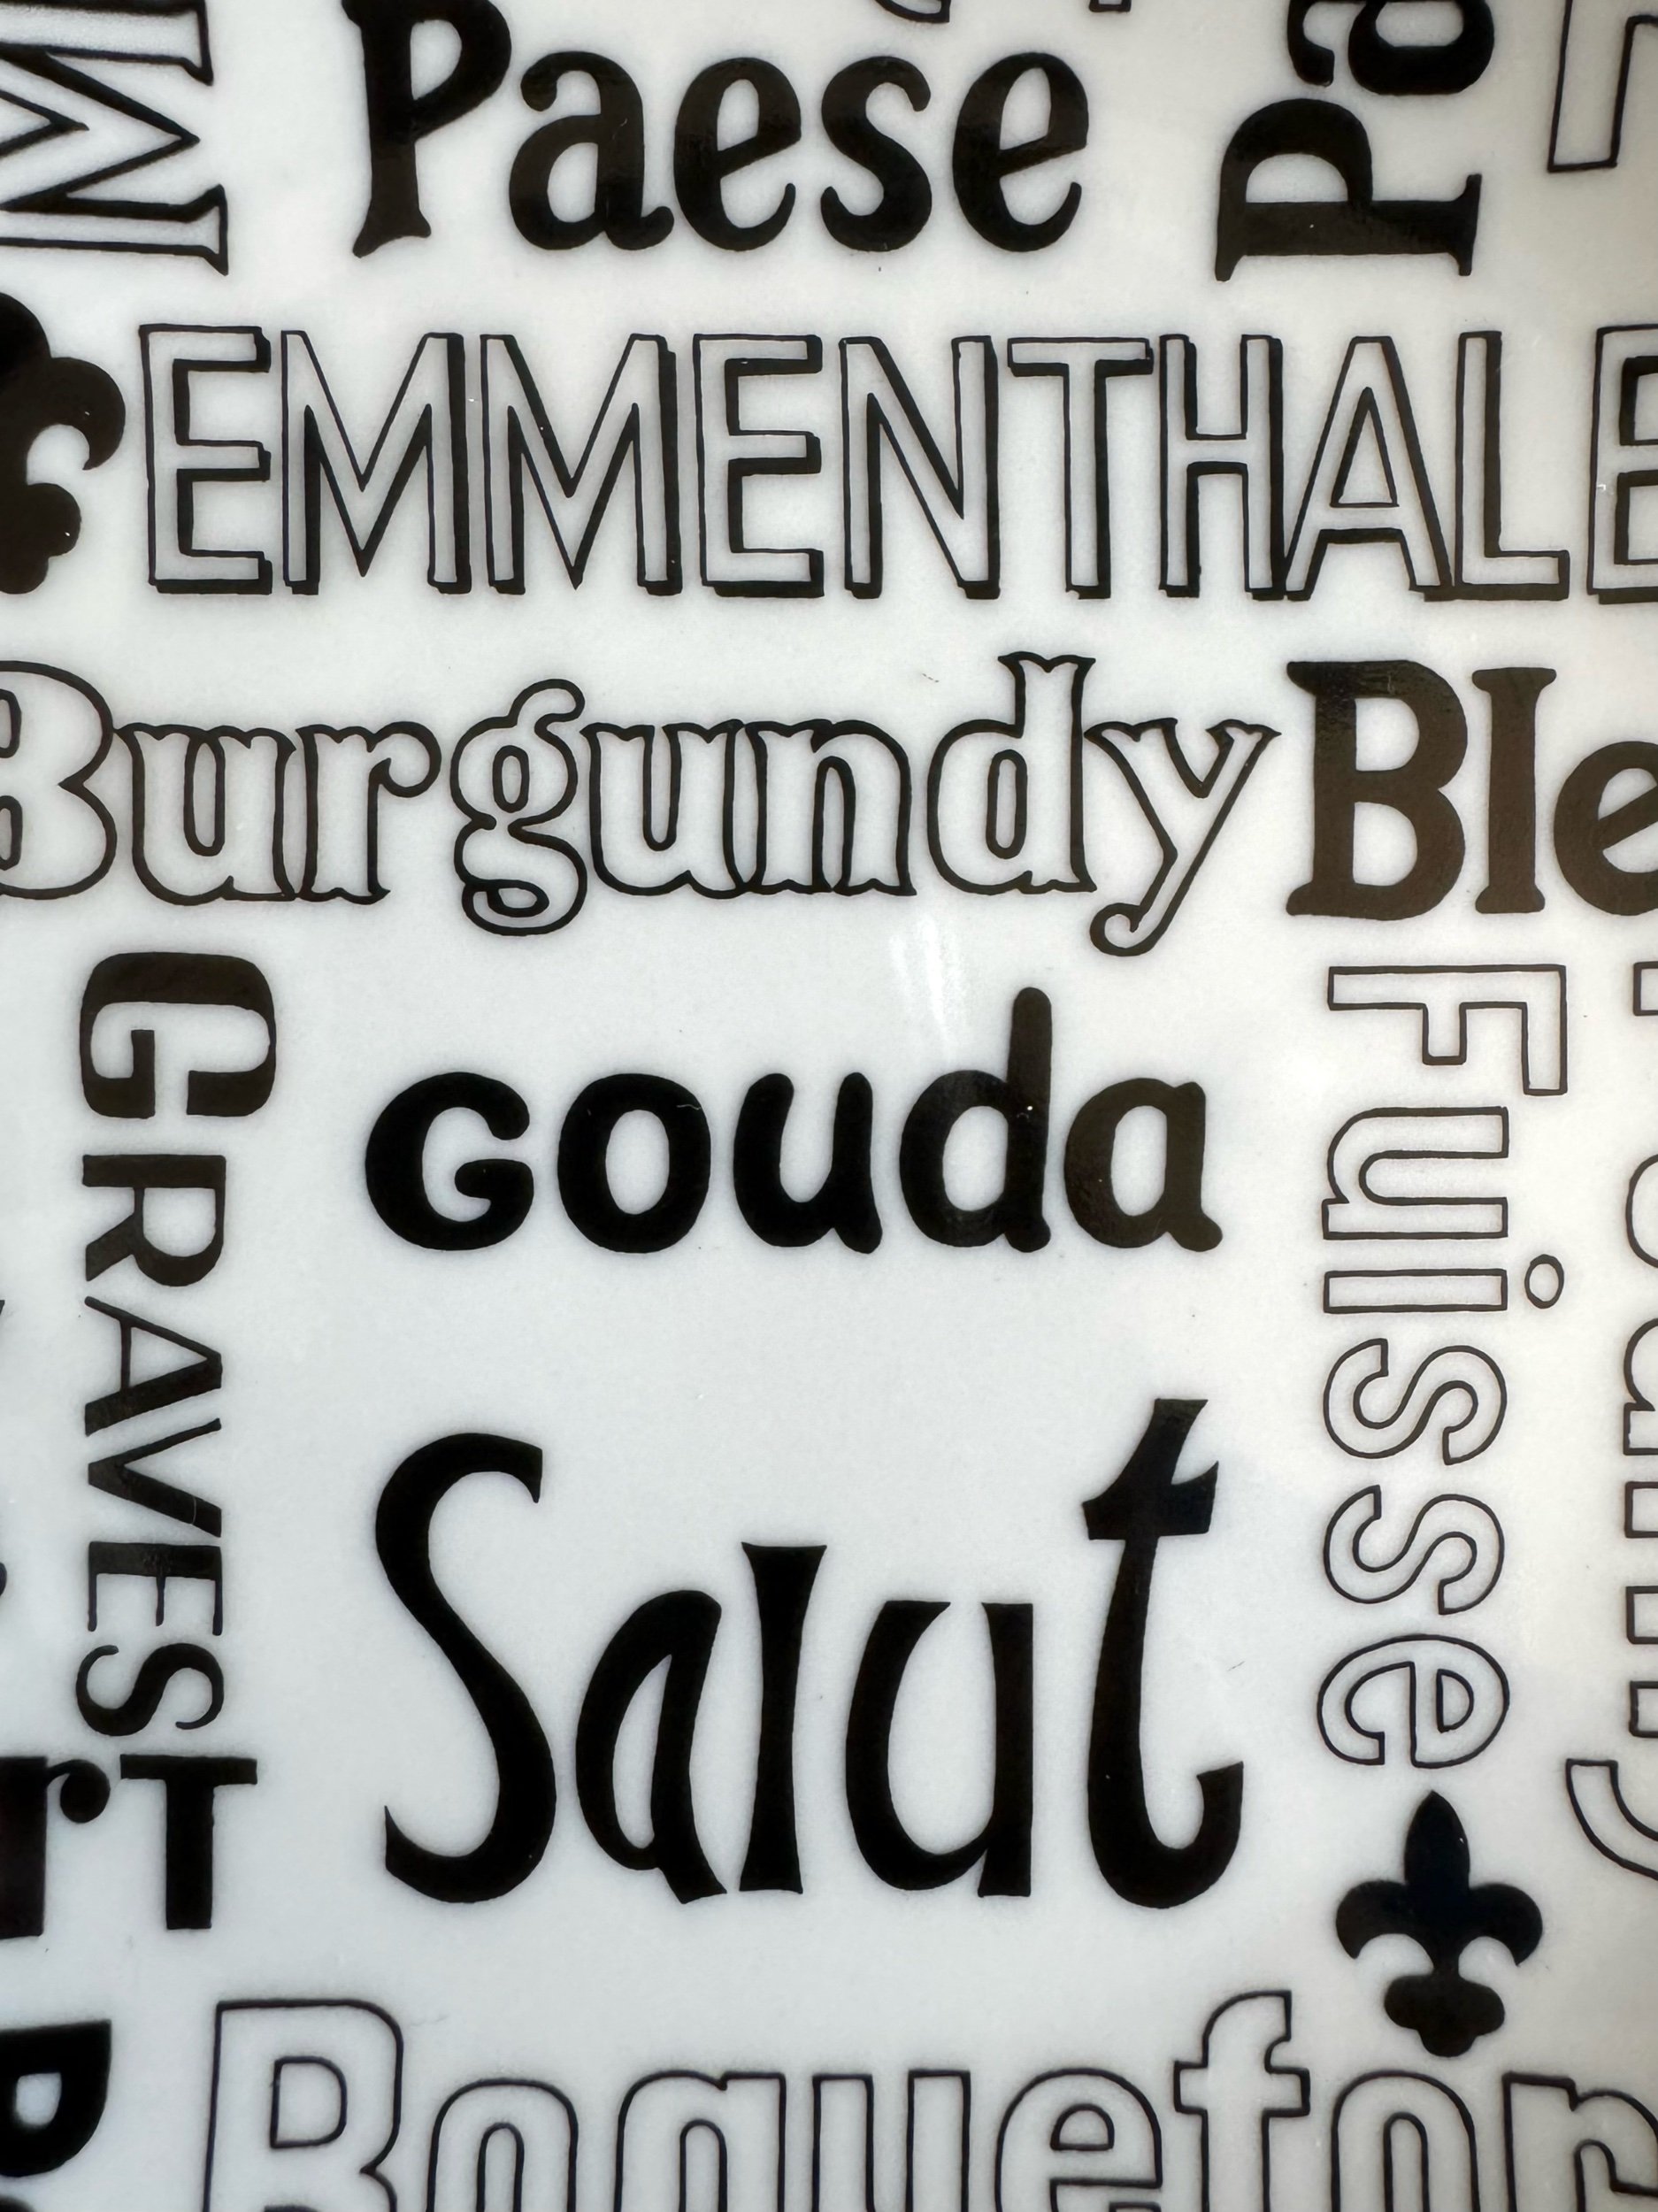 Paese
Pa
EMMENTHALE
Burgundy Ble
GRAVES
Gouda
Fuisse
Salut
T
Roquefor